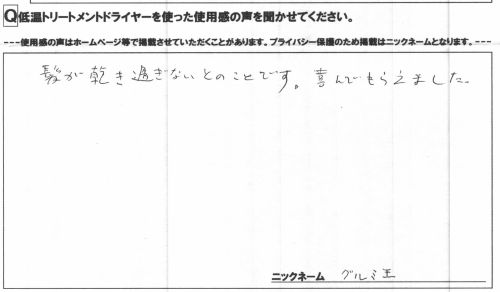 Q低温トリートメントドライヤーを使った使用感の声を聞かせてください。
---使用感の声はホームページ等で掲載させていただくことがあります。プライバシー保護のため掲載はニックネームとなります。---
髪が乾き過ぎないとのことです。喜んでもらえました。
ニックネーム グルミ王